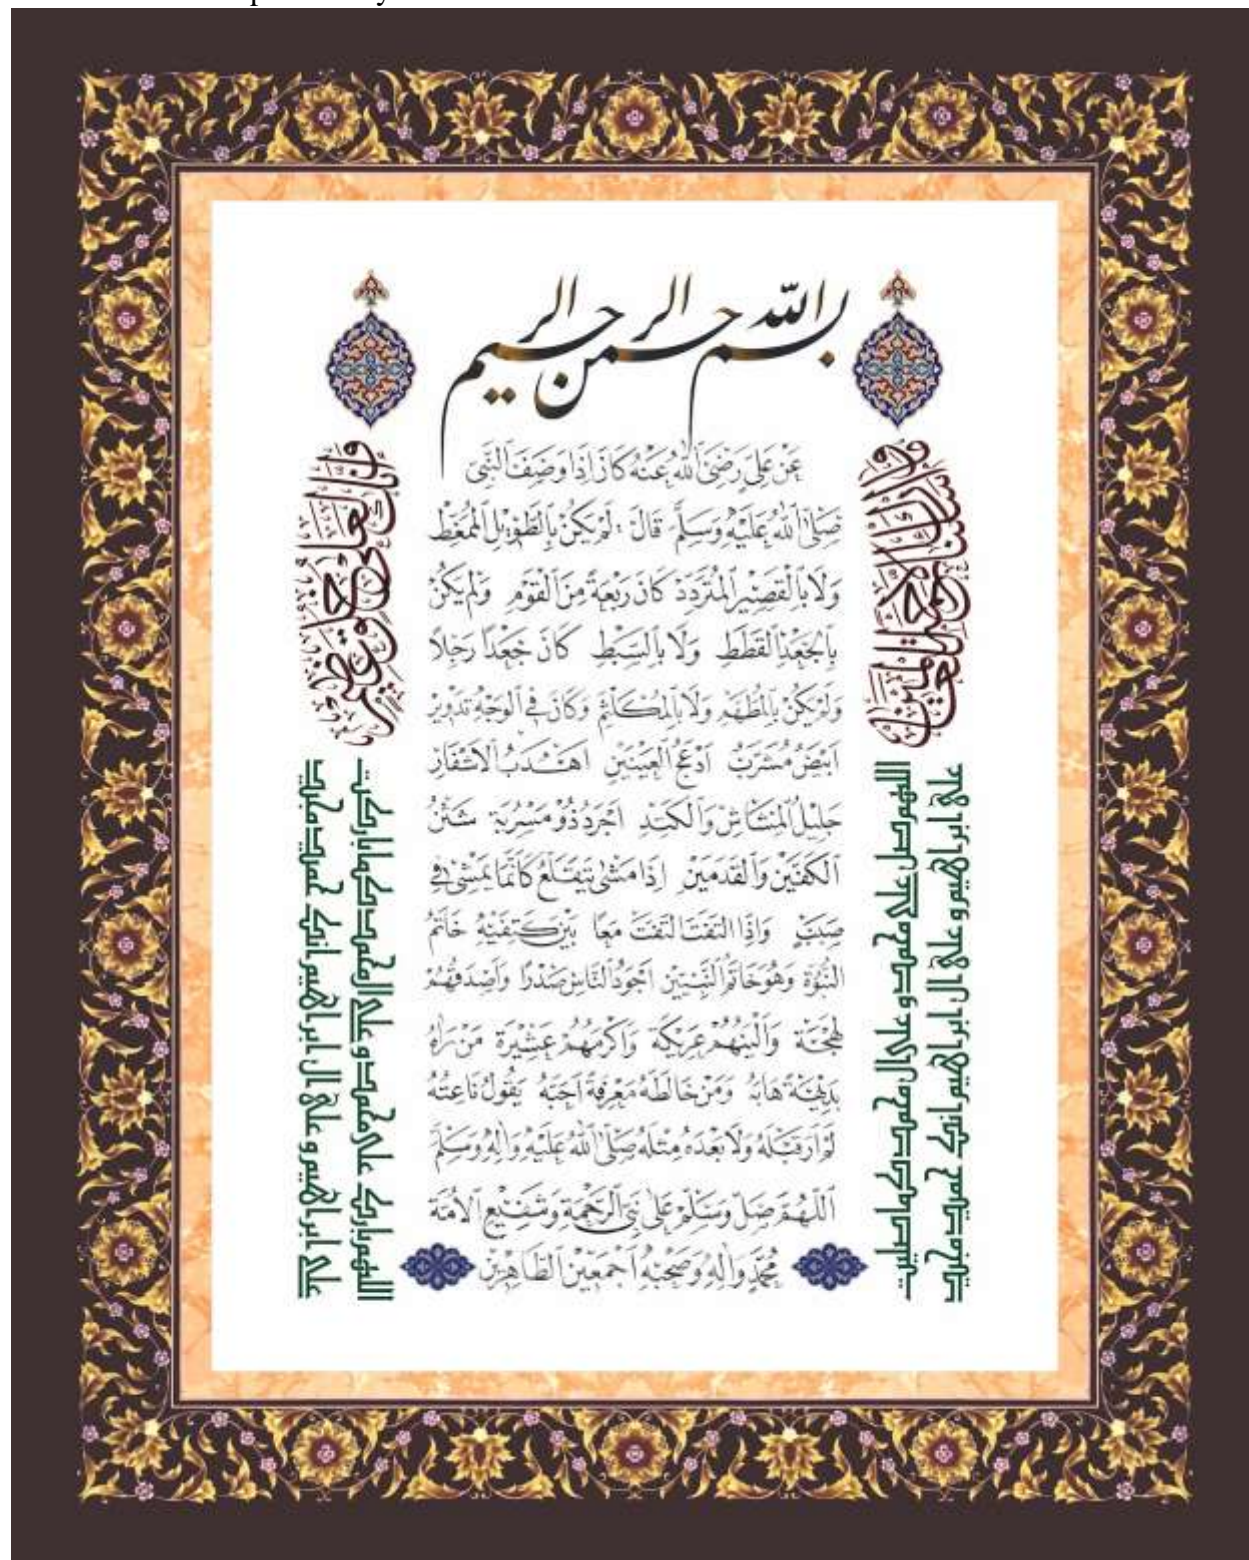 بسم الله الرحمن الرحيم
عَنْ عَلِيٍّ رَضِيَ ٱللّٰهُ عَنْهُ كَانَ اِذَا وَصَفَ ٱلنَّبِيَّ
صَلَّى ٱللّٰهُ عَلَيْهِ وَسَلَّمَ قَالَ : لَمْ يَكُنْ بِٱلطَّوِيْلِ ٱلْمُمَغَّطِ
وَلَا بِٱلْقَصِيْرِ ٱلْمُتَرَدِّدْ كَانَ رَبْعَةً مِنَ ٱلْقَوْمِ وَلَمْ يَكُنْ
بِٱلْجَعْدِ ٱلْقَطَطِ وَلَا بِٱلسَّبْطِ كَانَ جَعْدًا رَجِلًا
وَلَمْ يَكُنْ بِٱلْمُطَهَّمِ وَلَا بِٱلْمُكَلْثَمِ وَكَانَ فِي ٱلْوَجْهِ تَدْوِيْرٌ
اَبْيَضُ مُشْرَبٌ اَدْعَجُ ٱلْعَيْنَيْنِ اَهْدَبُ ٱلْاَشْفَارِ
جَلِيْلُ ٱلْمُشَاشِ وَٱلْكَتَدِ اَجْرَدُ ذُوْ مَسْرُبَةٍ شَثْنُ
ٱلْكَفَّيْنِ وَٱلْقَدَمَيْنِ اِذَا مَشٰى يَتَقَلَّعُ كَاَنَّمَا يَمْشِيْ فِيْ
صَبَبٍ وَاِذَا الْتَفَتَ الْتَفَتَ مَعًا بَيْنَ كَتِفَيْهِ خَاتَمُ
النُّبُوَّةِ وَهُوَ خَاتَمُ ٱلنَّبِيِّيْنَ اَجْوَدُ ٱلنَّاسِ صَدْرًا وَاَصْدَقُهُمْ
لَهْجَةً وَاَلْيَنُهُمْ عَرِيْكَةً وَاَكْرَمُهُمْ عَشِيْرَةً مَنْ رَاٰهُ
بَدِيْهَةً هَابَهُ وَمَنْ خَالَطَهُ مَعْرِفَةً اَحَبَّهُ يَقُولُ نَاعِتُهُ
لَمْ اَرَ قَبْلَهُ وَلَا بَعْدَهُ مِثْلَهُ صَلَّى ٱللّٰهُ عَلَيْهِ وَاٰلِهِ وَسَلَّمَ
اَللّٰهُمَّ صَلِّ وَسَلِّمْ عَلٰى نَبِيِّ ٱلرَّحْمَةِ وَشَفِيْعِ ٱلْاُمَّةِ
مُحَمَّدٍ وَاٰلِهِ وَصَحْبِهِ اَجْمَعِيْنَ ٱلطَّاهِرِيْنَ
وما أرسلناك إلا رحمة للعالمين
اللهم صل على محمد وعلى ال محمد كما صليت
على ابراهيم وعلى ال ابراهيم انك حميد مجيد
اللهم بارك على محمد وعلى ال محمد كما باركت
على ابراهيم وعلى ال ابراهيم انك حميد مجيد